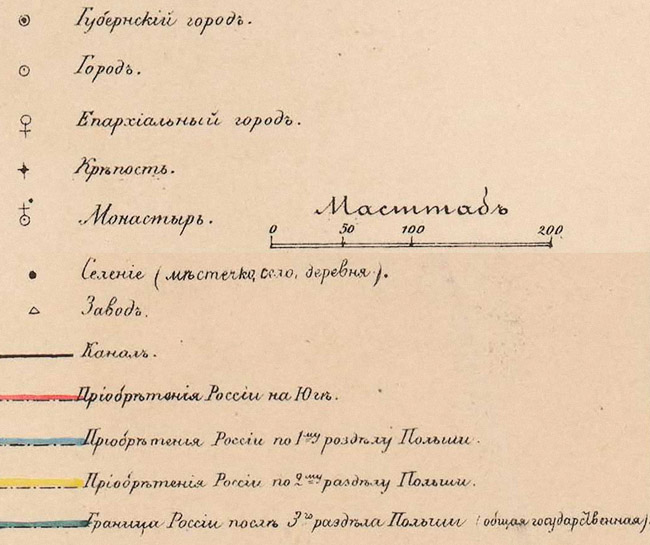 Губернскій городъ.
Городъ.
Епархіальный городъ.
Крѣпость.
Монастырь.
Масштабъ
0 50 100 200
Селеніе (мѣстечко, село, деревня).
Заводъ.
Каналъ.
Пріобрѣтенія Россіи на Югѣ.
Пріобрѣтенія Россіи по 1му роздѣлу Польши.
Пріобрѣтенія Россіи по 2му раздѣлу Польши.
Граница Россіи послѣ 3го раздѣла Польши (общая государственная).